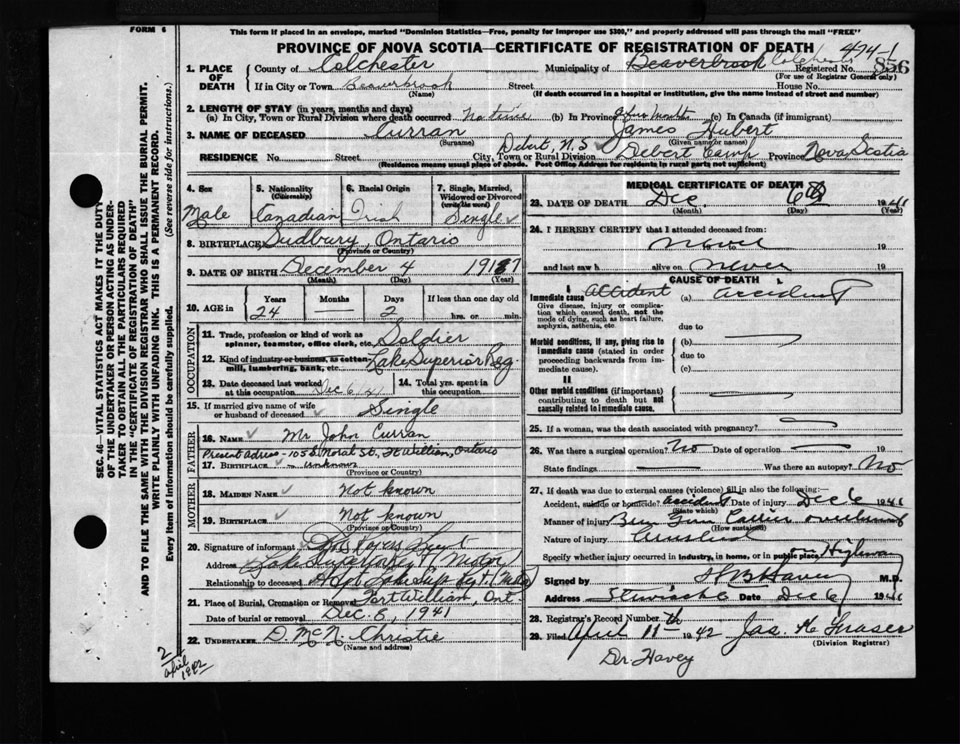 FORM 6
This form if placed in an envelope, marked "Dominion Statistics—Free, penalty for improper use $300," and properly addressed will pass through the mail "FREE"
PROVINCE OF NOVA SCOTIA—CERTIFICATE OF REGISTRATION OF DEATH
474-1
1. PLACE OF DEATH
County of Colchester Municipality of Beaverbrook Colchester Registered No. 856
(For use of Registrar General only)
If in City or Town Beaverbrook Street House No.
(Name) (If death occurred in a hospital or institution, give the name instead of street and number)
2. LENGTH OF STAY (in years, months and days)
(a) In City, Town or Rural Division where death occurred No time (b) In Province (c) In Canada (if immigrant)
3. NAME OF DECEASED Curran James Hubert
(Surname) (Given name or names)
Debert, N.S
RESIDENCE No. Street City, Town or Rural Division Debert Camp Province Nova Scotia
(Residence means usual place of abode. Post Office Address for residents in rural parts not sufficient)
4. Sex
Male
5. Nationality (Citizenship)
Canadian
6. Racial Origin
Irish
7. Single, Married, Widowed or Divorced (write the word)
Single
8. BIRTHPLACE Sudbury, Ontario
(Province or Country)
9. DATE OF BIRTH December 4 1917
(Month) (Day) (Year)
10. AGE in Years Months Days If less than one day
24 — 2 hrs. or min.
OCCUPATION
11. Trade, profession or kind of work as spinner, teamster, office clerk, etc. Soldier
12. Kind of industry or business, as cotton-mill, lumbering, bank, etc. Lake Superior Reg.
13. Date deceased last worked at this occupation Dec 6/41
14. Total yrs. spent in this occupation
15. If married give name of wife or husband of deceased Single
FATHER
16. NAME Mr John Curran
Present adress - Norah St, Ft William, Ontario
17. BIRTHPLACE - unknown
(Province or Country)
MOTHER
18. MAIDEN NAME Not known
19. BIRTHPLACE Not known
(Province or Country)
20. Signature of informant
Address Lake Superior Regt (Motor)
Relationship to deceased Lake Sup Regt (Motor)
21. Place of Burial, Cremation or Removal Fort William, Ont
Date of burial or removal Dec. 8, 1941
22. UNDERTAKER D. McN. Christie
(Name and address)
MEDICAL CERTIFICATE OF DEATH
23. DATE OF DEATH Dec. 6th 1941
(Month) (Day)
24. I HEREBY CERTIFY that I attended deceased from:
never to 19
and last saw h alive on never 19
CAUSE OF DEATH
I
Immediate cause Accident (a) accident
Give disease, injury or complication which caused death, not the mode of dying, such as heart failure, asphyxia, asthenia, etc.
due to
Morbid conditions, if any, giving rise to immediate cause (stated in order proceeding backwards from immediate cause).
(b)
due to
(c)
II
Other morbid conditions (if important) contributing to death but not causally related to immediate cause.
25. If a woman, was the death associated with pregnancy?
26. Was there a surgical operation? No Date of operation
State findings Was there an autopsy? No
27. If death was due to external causes (violence) fill in also the following:
Accident, suicide or homicide? accident Date of injury Dec 6 1941
(State which)
Manner of injury Bren Gun Carrier overturned
(How sustained)
Nature of injury Crushed
Specify whether injury occurred in industry, in home, or in public place, Highway
Signed by H B Havey M.D.
Address Stewiacke Date Dec 6 1941
28. Registrar's Record Number
29. Filed April 11th 1942 Jas. H Fraser
(Division Registrar)
Dr. Havey
SEC. 46—VITAL STATISTICS ACT MAKES IT THE DUTY OF THE UNDERTAKER OR PERSON ACTING AS UNDERTAKER TO OBTAIN ALL THE PARTICULARS REQUIRED IN THE "CERTIFICATE OF REGISTRATION OF DEATH"
AND TO FILE THE SAME WITH THE DIVISION REGISTRAR WHO SHALL ISSUE THE BURIAL PERMIT.
WRITE PLAINLY WITH UNFADING INK. THIS IS A PERMANENT RECORD.
Every item of information should be carefully supplied. (See reverse side for instructions.)
2
April
1942